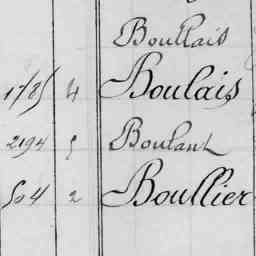 Boullais
1785 4 Boulais
2194 5 Boulant
504 2 Boullier